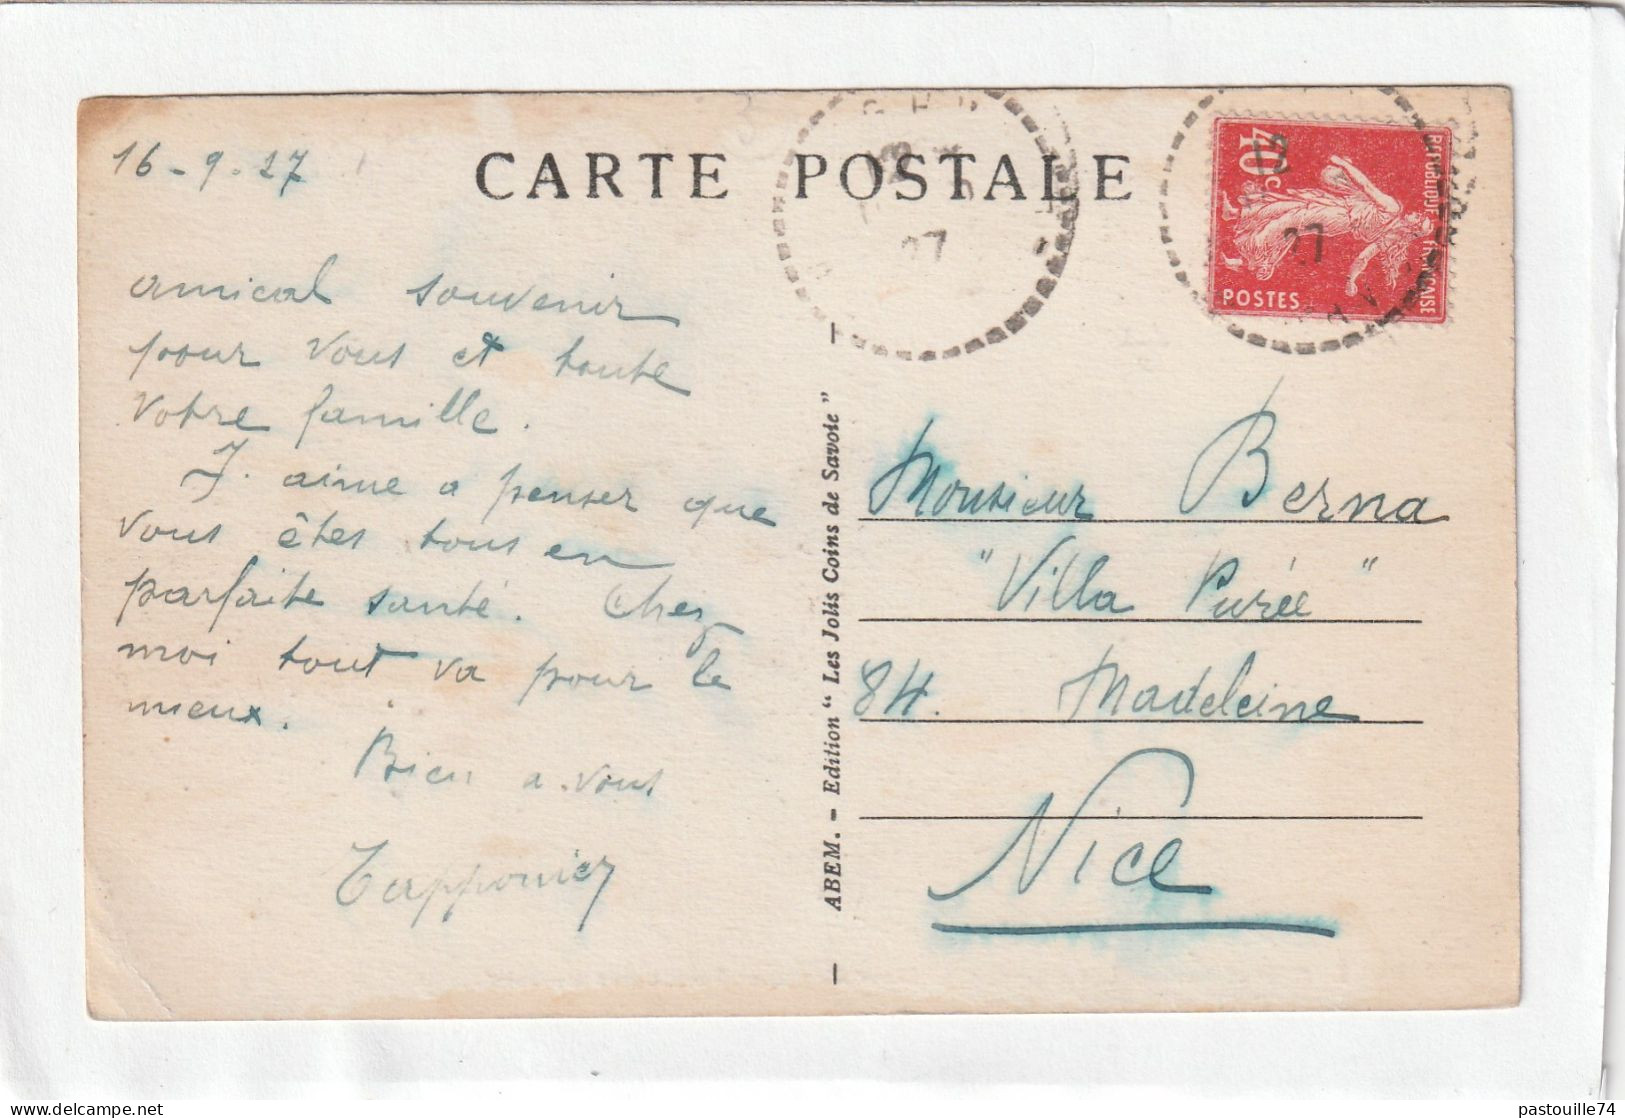 16-9-27
CARTE POSTALE
amical souvenir
pour vous et toute
votre famille.
J. aime a penser que
vous êtes tous en
parfaite santé. Chez
moi tout va pour le
mieux.
Bien a vous
Tapponier
ABEM. - Edition "Les Jolis Coins de Savoie"
27
40c
REPUBLIQUE FRANÇAISE
POSTES
27
Monsieur Berna
"Villa Purée"
84. Madeleine
Nice
pastouille74